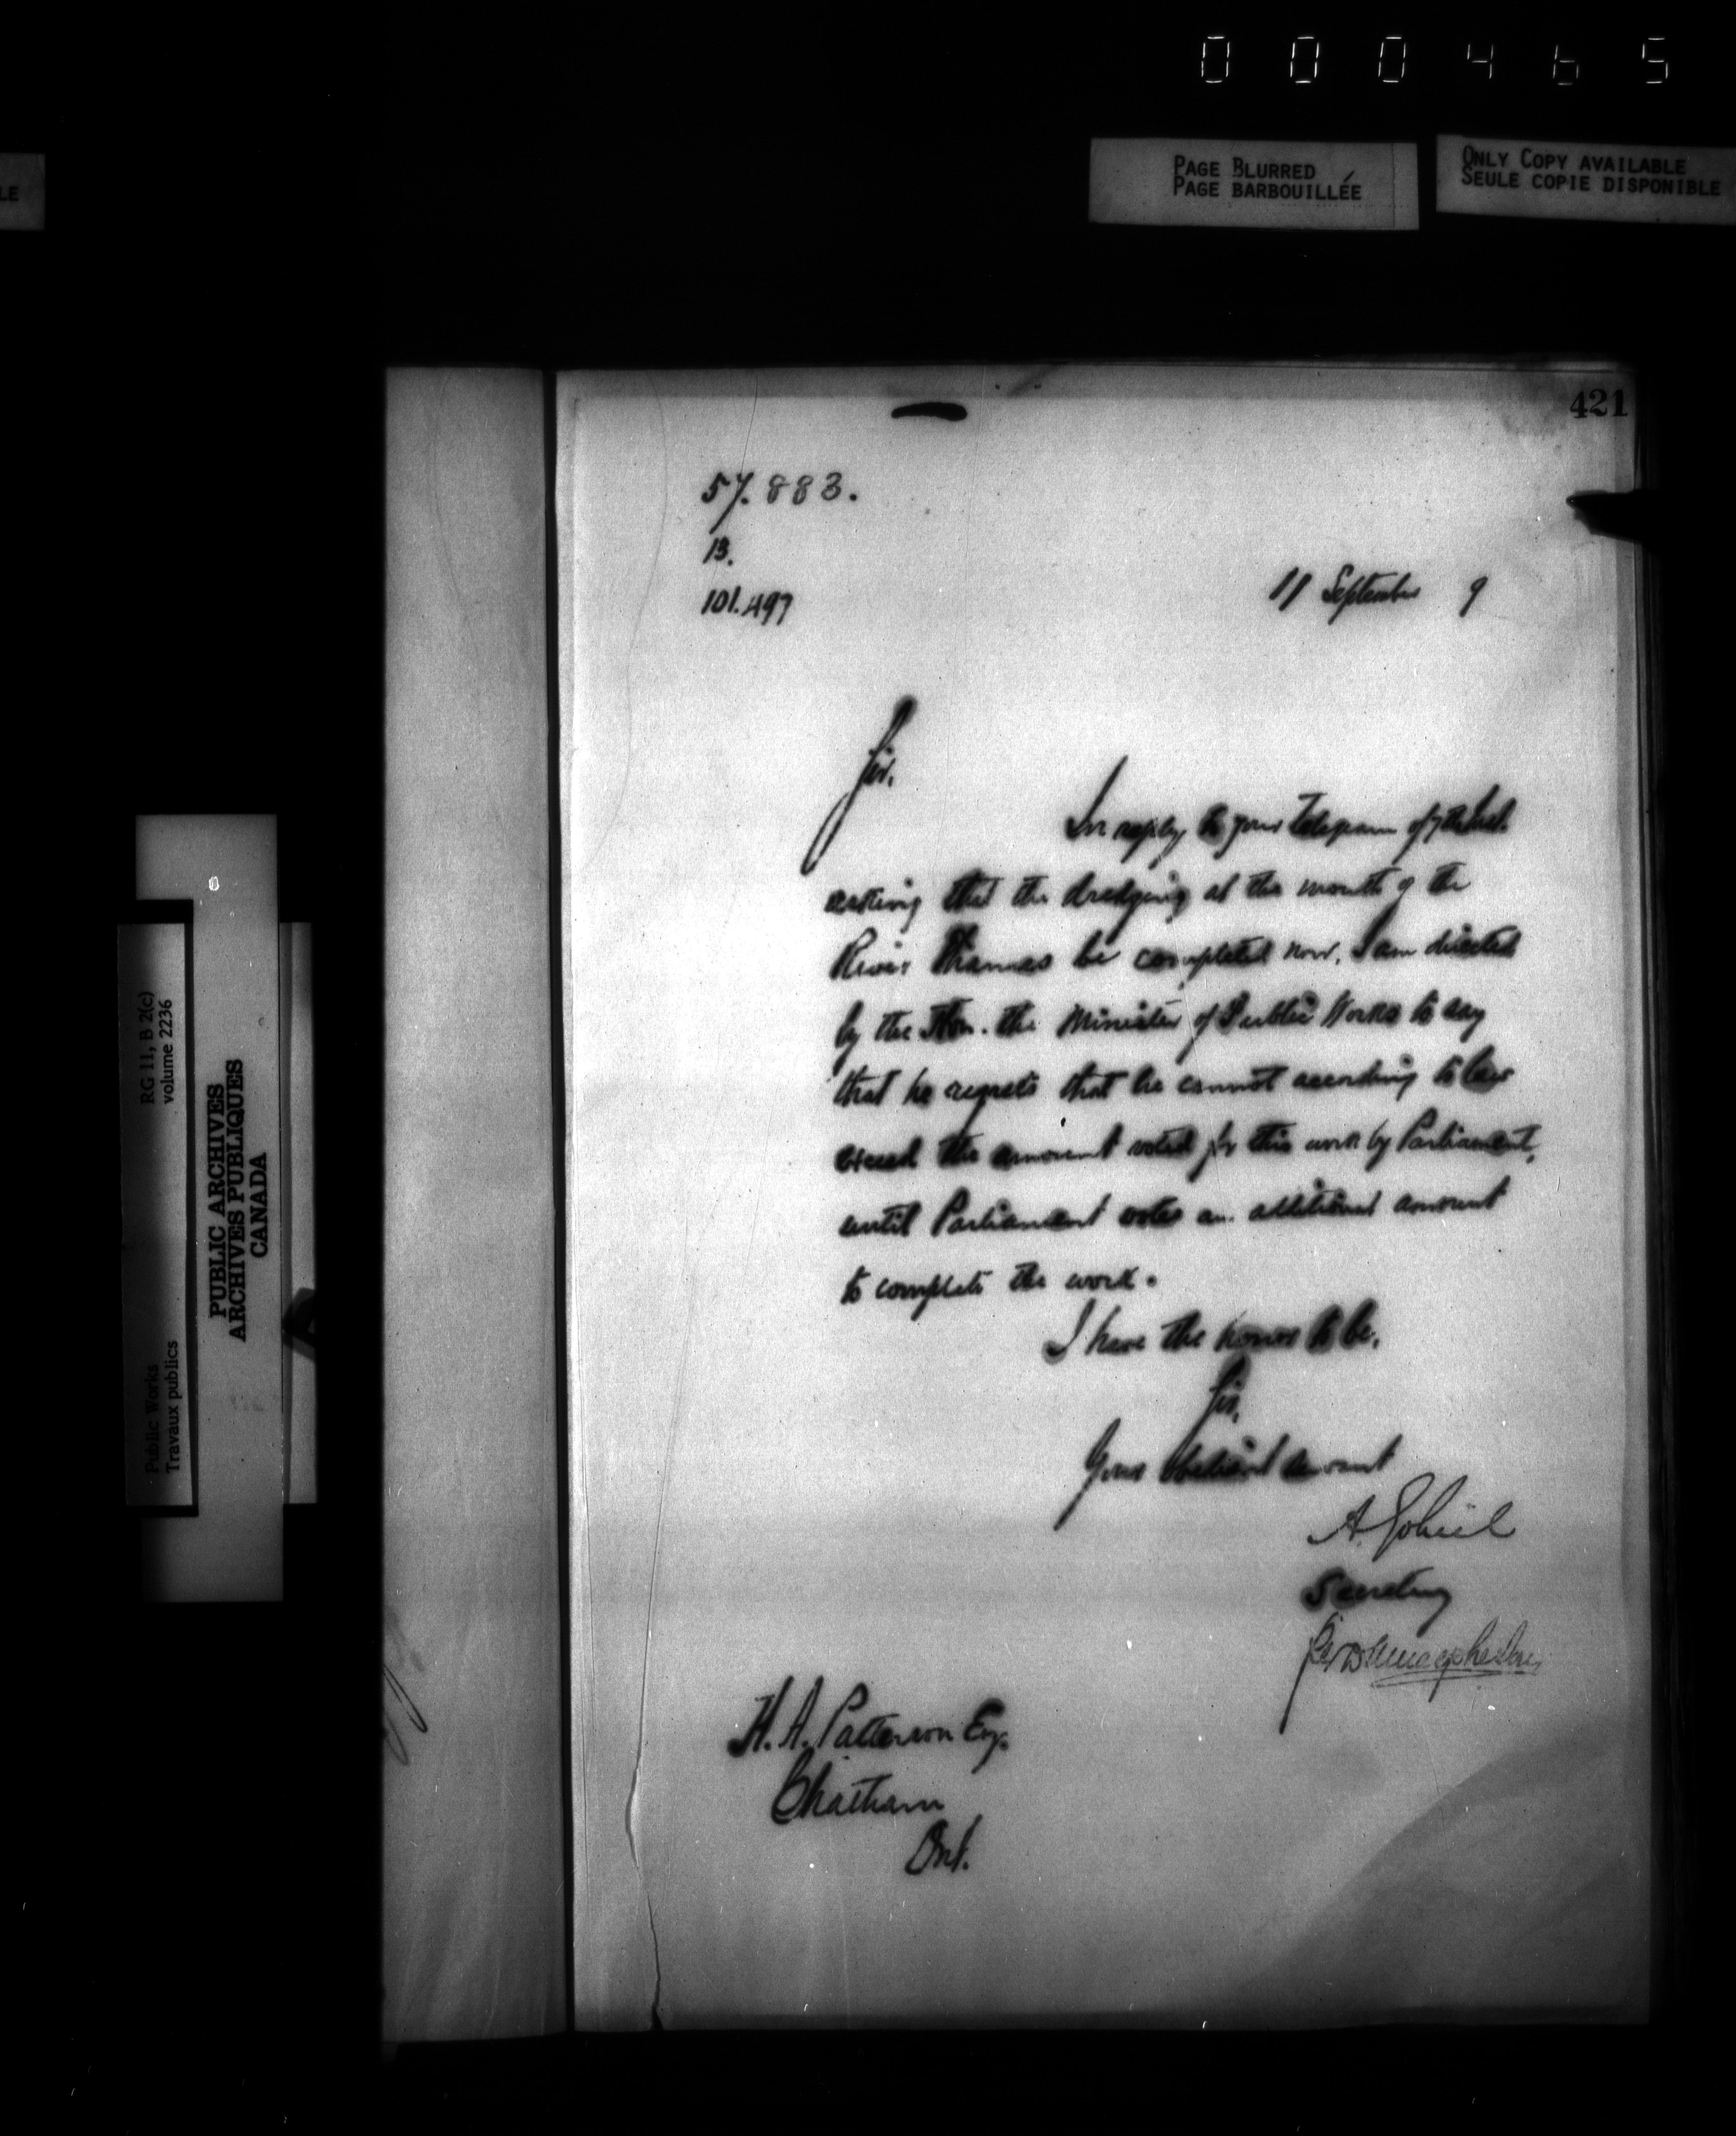 000465
PAGE BLURRED
PAGE BARBOUILLÉE
ONLY COPY AVAILABLE
SEULE COPIE DISPONIBLE
LE
421
57.883.
13.
101.497
11 September 9
Sir,
In reply to your telegram of 7th Inst.
asking that the dredging at the mouth of the
River Thames be completed now, I am directed
by the Hon. the Minister of Public Works to say
that he regrets that he cannot according to law
exceed the amount voted for this work by Parliament,
until Parliament votes an additional amount
to complete the work.
I have the honor to be,
Sir,
Your obedient servant
A. Gobeil
Secretary
Per
H. A. Patterson Esq.
Chatham
Ont.
RG 11, B 2(c)
volume 2236
Public Works
Travaux publics
PUBLIC ARCHIVES
ARCHIVES PUBLIQUES
CANADA